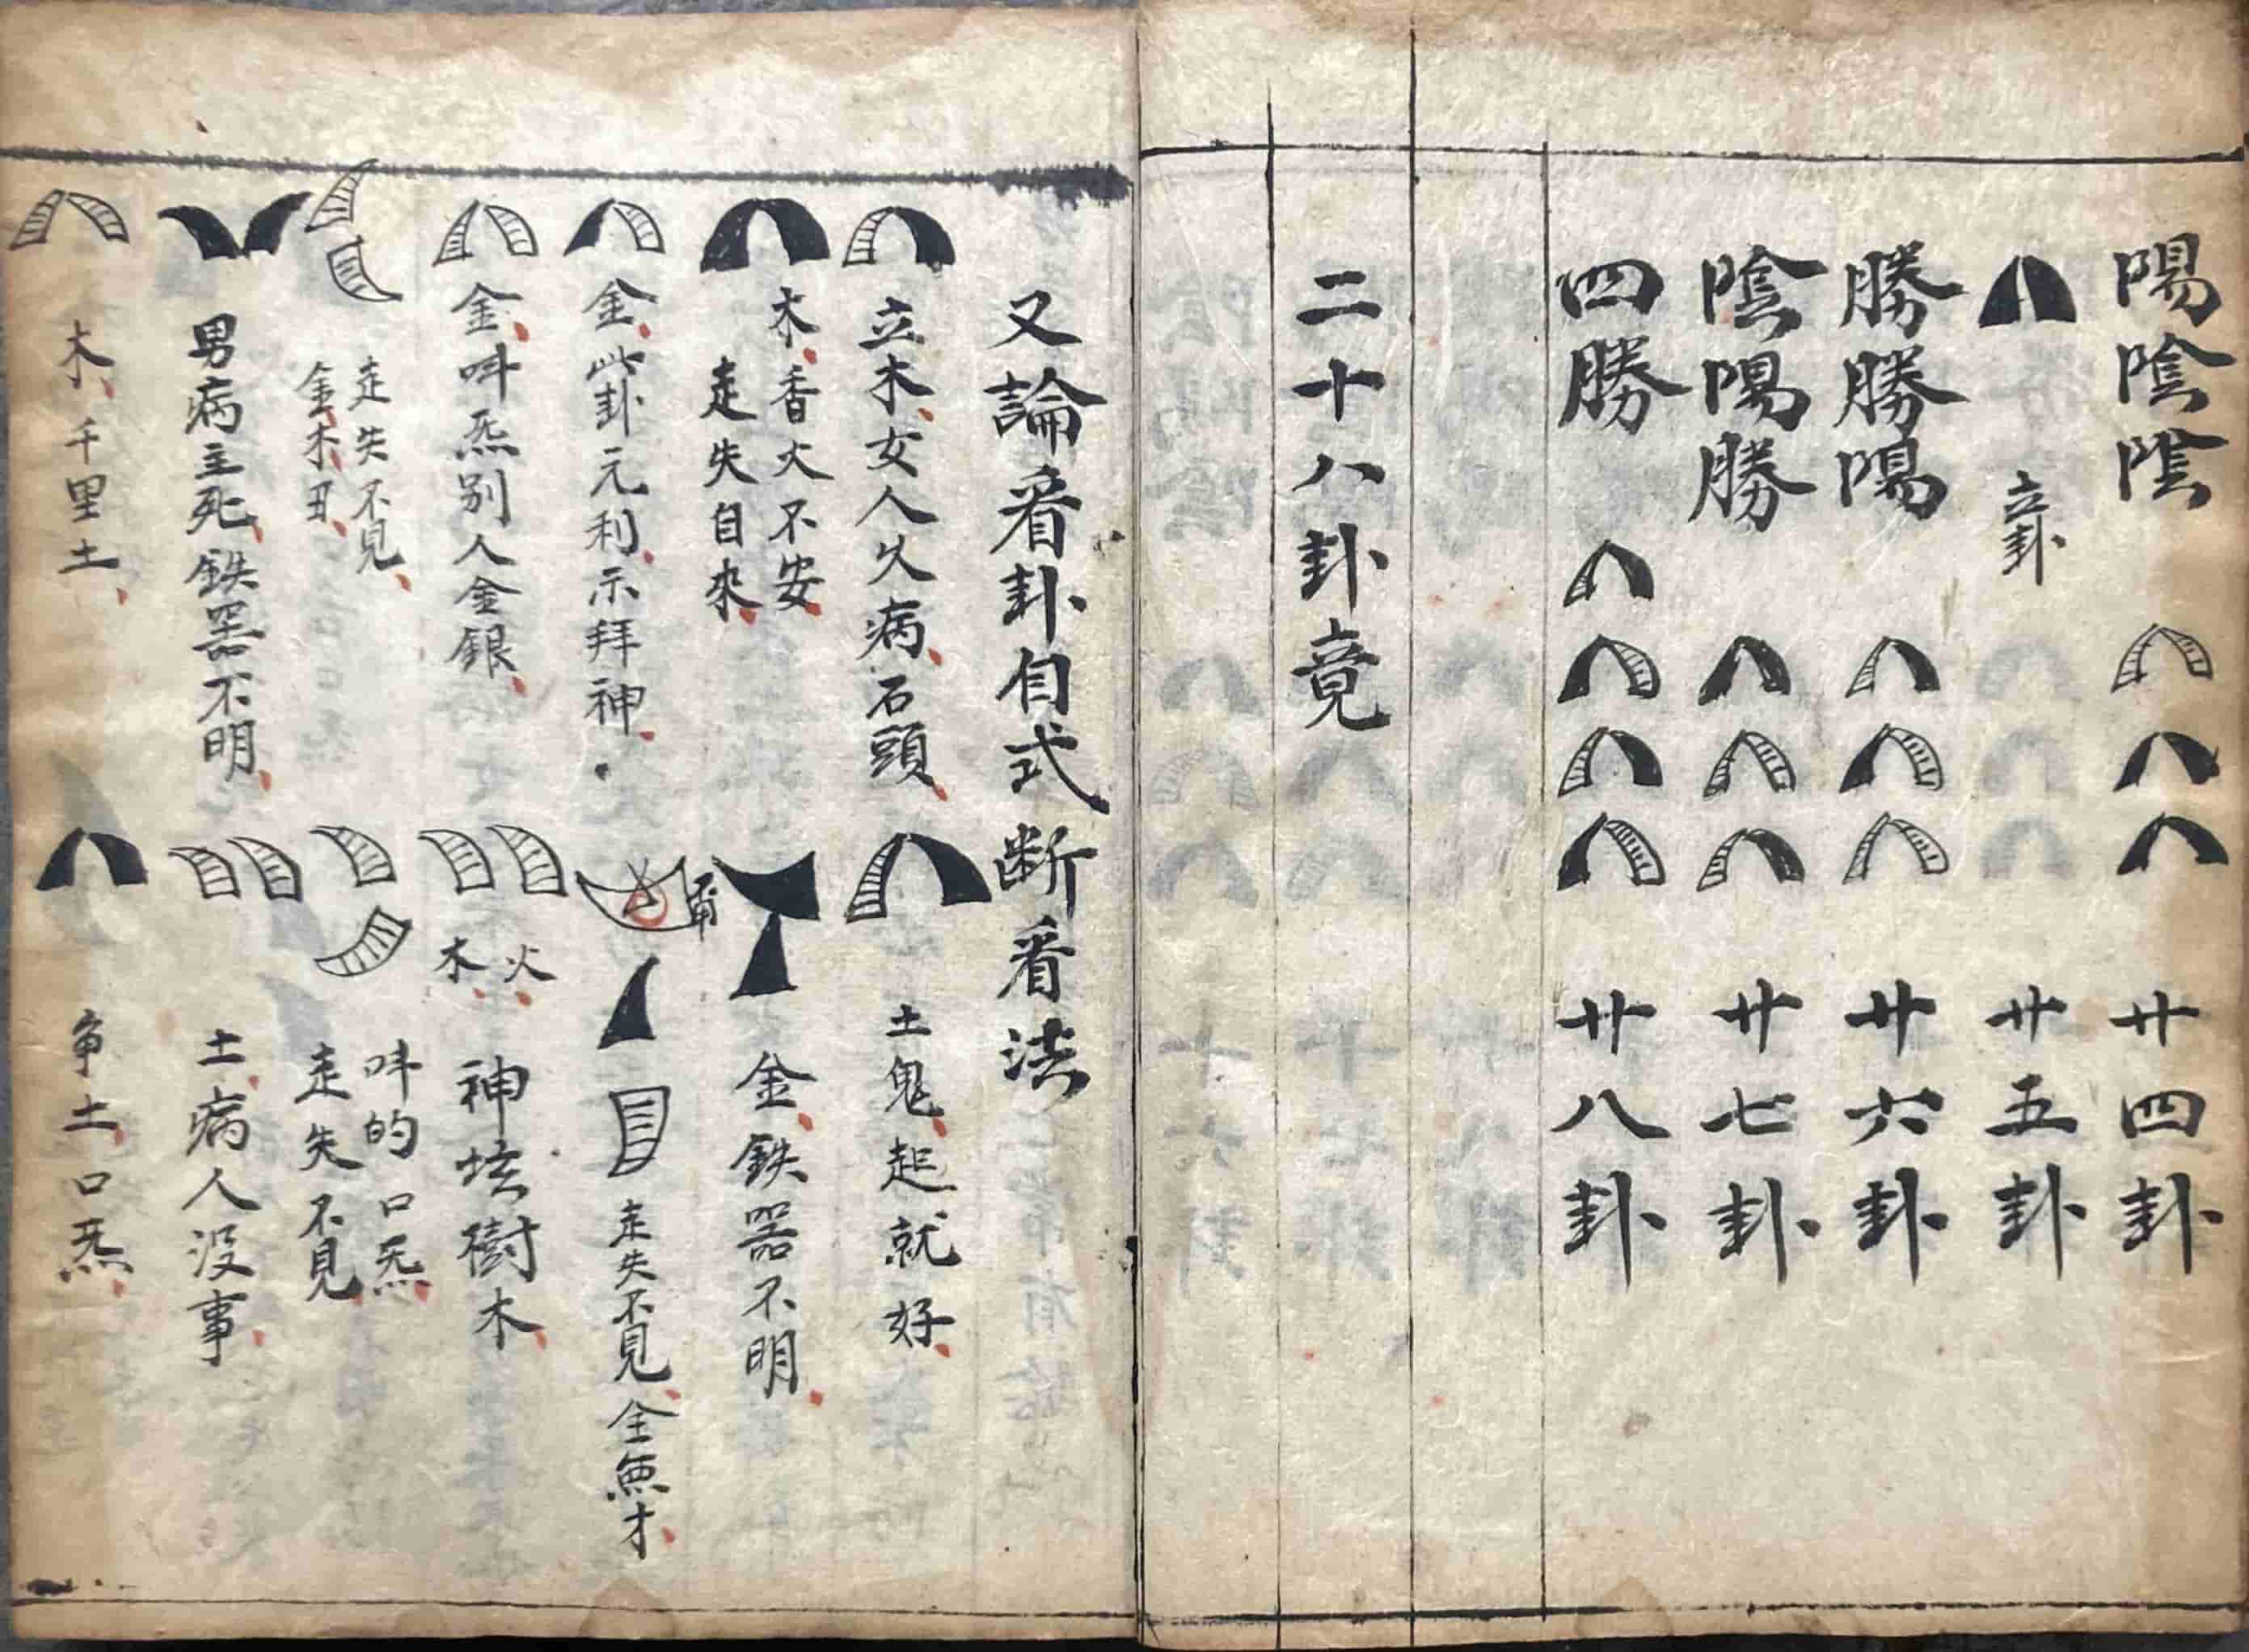 陽陰陰 廿四卦
立卦 廿五卦
勝勝陽 廿六卦
陰陽勝 廿七卦
四勝 廿八卦
二十八卦竟
又論看卦自式断看法
立木女人火病石頭
土鬼起就好
木香火不安
走失自來
金鉄器不明
金此卦元利示拜神
走失不見全無才
金呌炁别人金銀
木火
神坛樹木
走失不見
金木丑
呌的口炁
走失不見
男病主死鉄器不明
土病人没事
木千里土
争土口炁